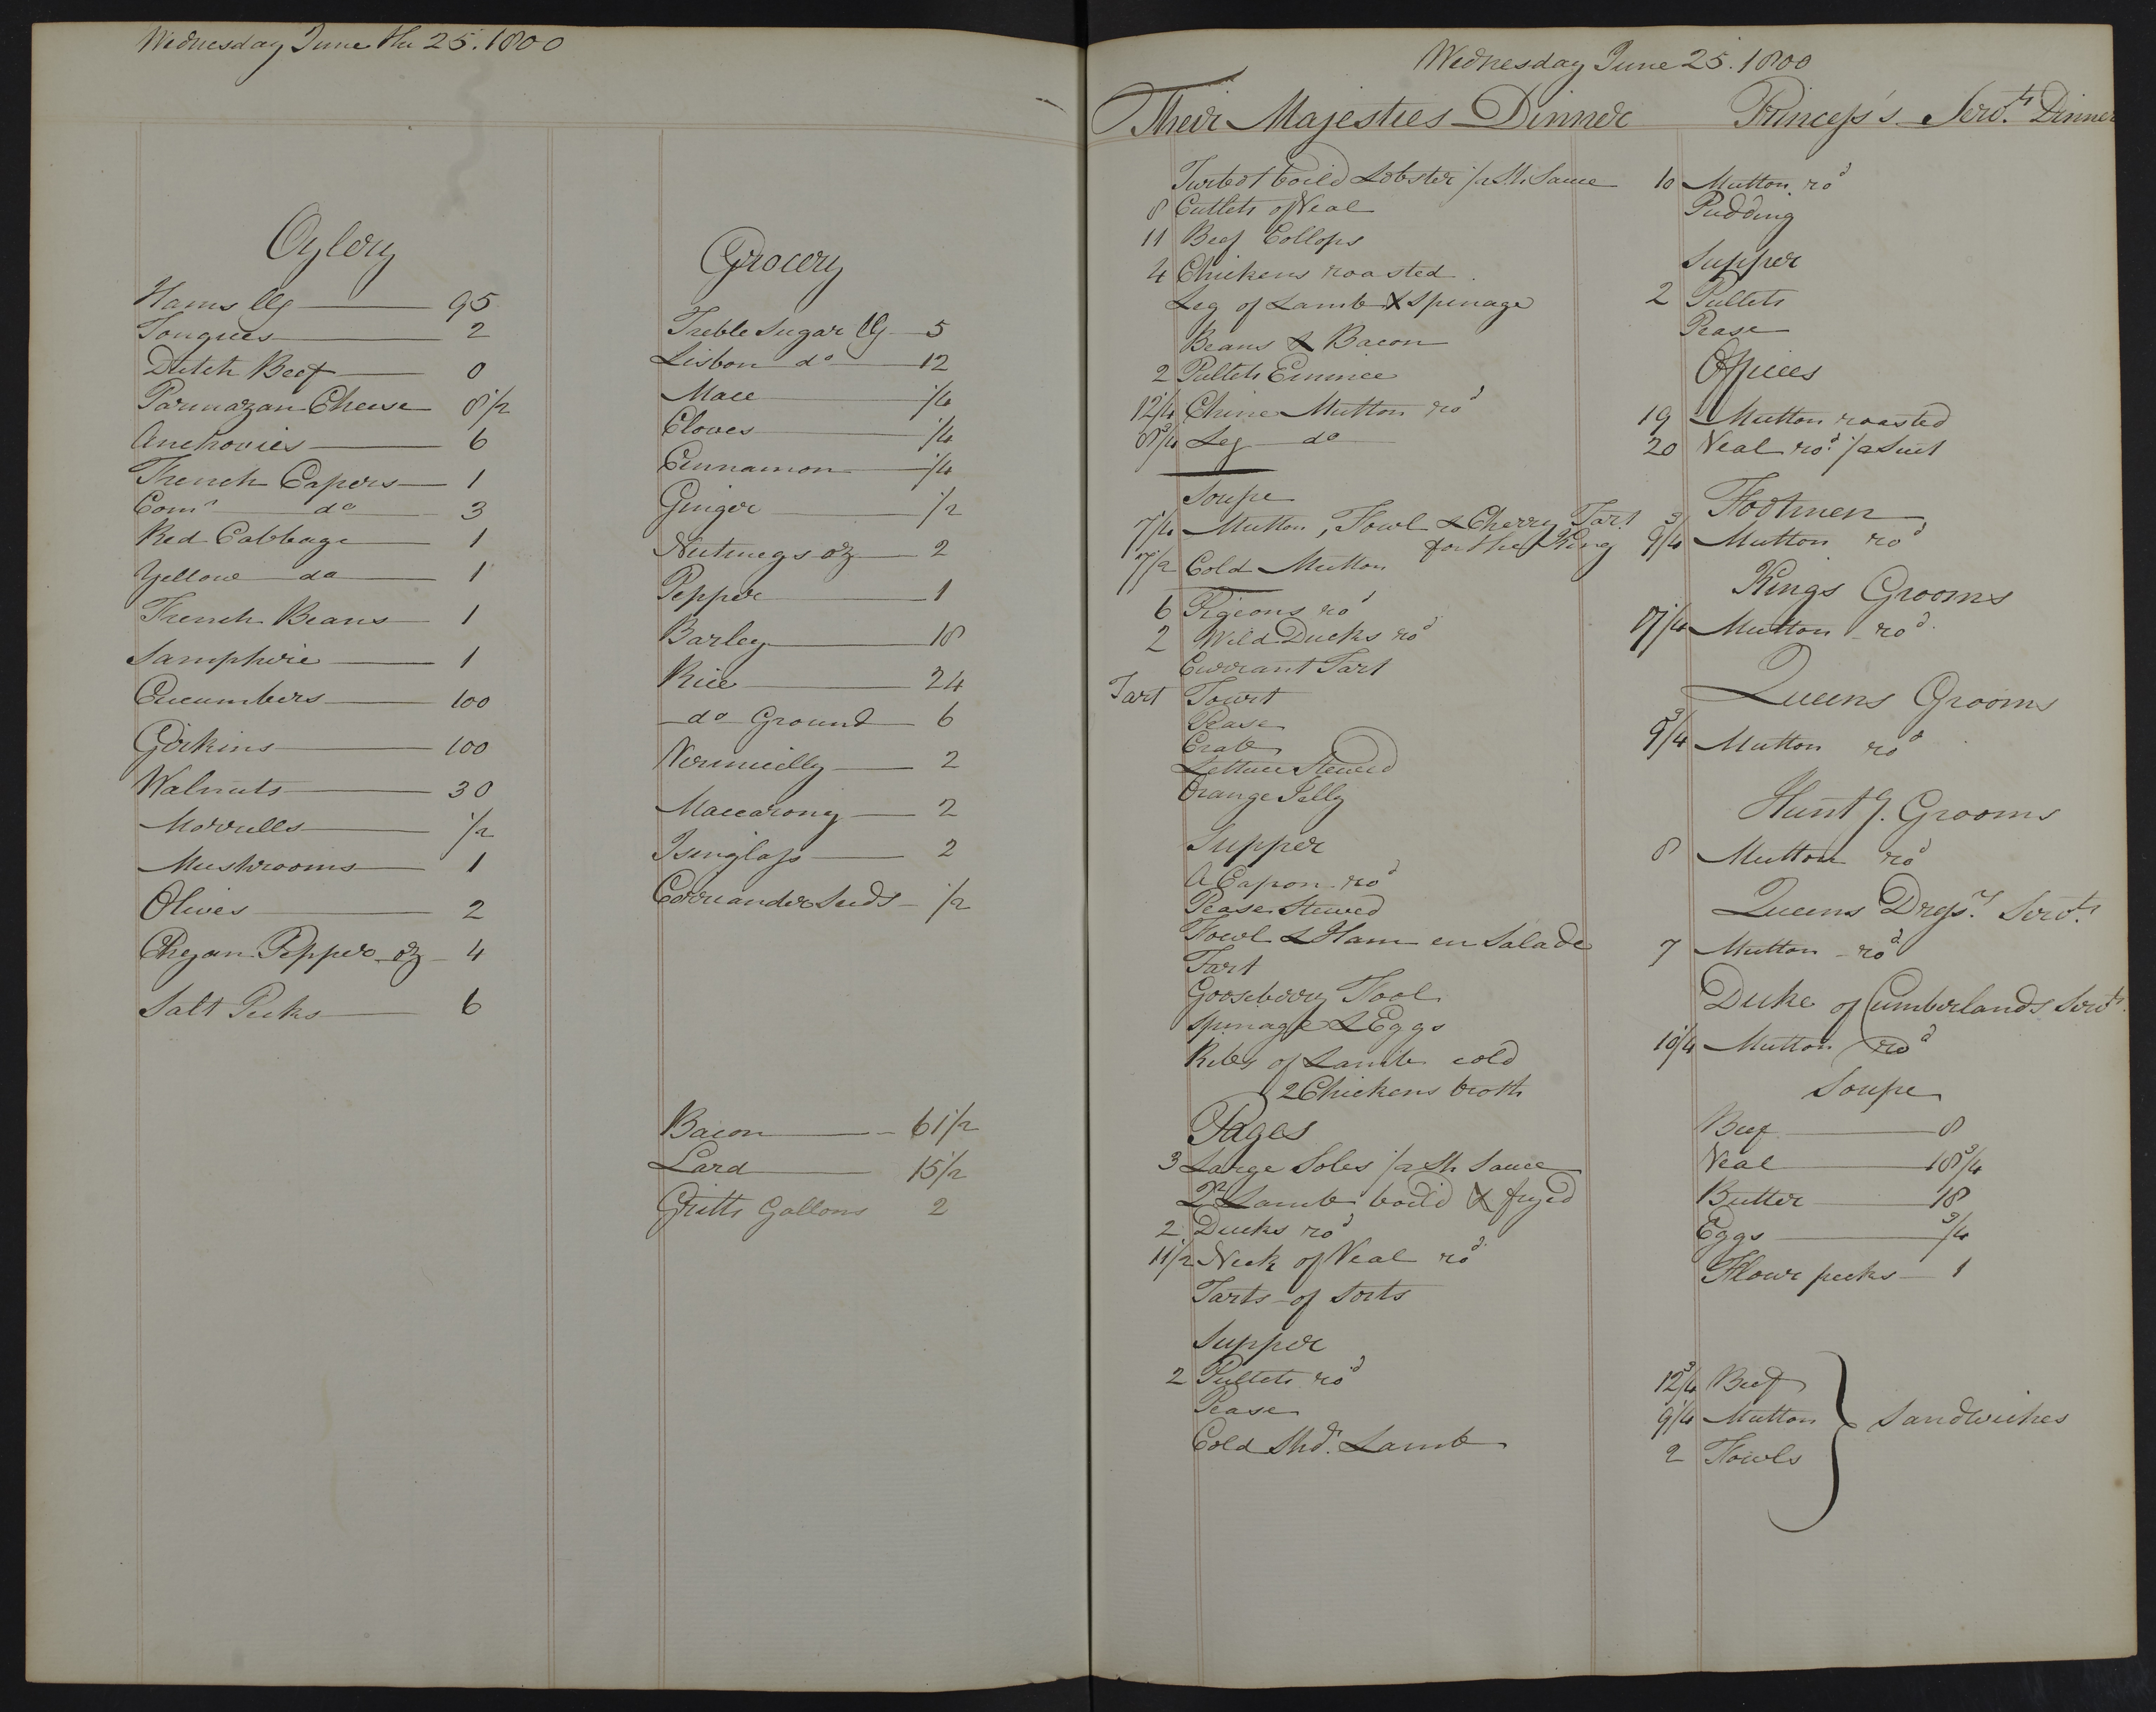 Wednesday June the 25. 1800
Oylery
Hams lb 95
Tongues 2
Dutch Beef 0
Parmazan Cheese 8 1/2
Anchovies 6
French Capers 1
Com.n do 3
Red Cabbage 1
Yellow do 1
French Beans 1
Samphire 1
Cucumbers 100
Girkins 100
Walnuts 30
Morrells 1/2
Mushrooms 1
Olives 2
Chyan Pepper oz 4
Salt Pecks 6
Grocery
Treble Sugar lb 5
Lisbon do 12
Mace 1/4
Cloves 1/4
Cinnamon 1/4
Ginger 1/2
Nutmegs oz 2
Pepper 1
Barley 18
Rice 24
do Ground 6
Vermicelly 2
Maccarony 2
Isinglass 2
Corriander Seeds 1/2
Bacon 61 1/2
Lard 15 1/2
Gritts Gallons 2
Wednesday June 25. 1800
Their Majesties Dinner
Turbot boild Lobster /a Sh Sauce
8 Cutlets of Veal
11 Beef Collops
4 Chickens roasted
Leg of Lamb & Spinage
Beans & Bacon
2 Pullets Emince
12 1/4 Chine Mutton rod
8 3/4 Leg do
Soupe
7 1/4 Mutton, Fowl & Cherry Tart
for the King
17 1/2 Cold Mutton
6 Pigeons rod
2 Wild Ducks rod
Currant Tart
Tart Tourt
Pease
Crab
Lettuce Stewed
Orange Jelly
Supper
A Capon rod
Pease Stewed
Fowl & Ham en Salade
Tart
Gooseberry Fool
Spinage & Eggs
Ribs of Lamb cold
2 Chickens broth
Pages
3 Large Soles /a Sh Sauce
Qr Lamb boild & fryed
2 Ducks rod
11 1/2 Neck of Veal rod
Tarts of Sorts
Supper
2 Pullets rod
Pease
Cold Shd.r Lamb
Princess's Servts Dinner
10 Mutton rod
Pudding
Supper
2 Pullets
Pease
Offices
19 Mutton roasted
20 Veal rod /a Suet
Footmen
9 3/4 Mutton rod
Kings Grooms
17 1/4 Mutton rod
Queens Grooms
9 3/4 Mutton rod
Huntg. Grooms
8 Mutton rod
Queens Dress.rs Servts
7 Mutton rod
Duke of Cumberlands Servts
10 1/4 Mutton rod
Soupe
Beef 8
Veal 18 3/4
Butter 18
Eggs 3/4
Flour pecks 1
12 3/4 Beef
9 1/4 Mutton Sandwiches
2 Fowls